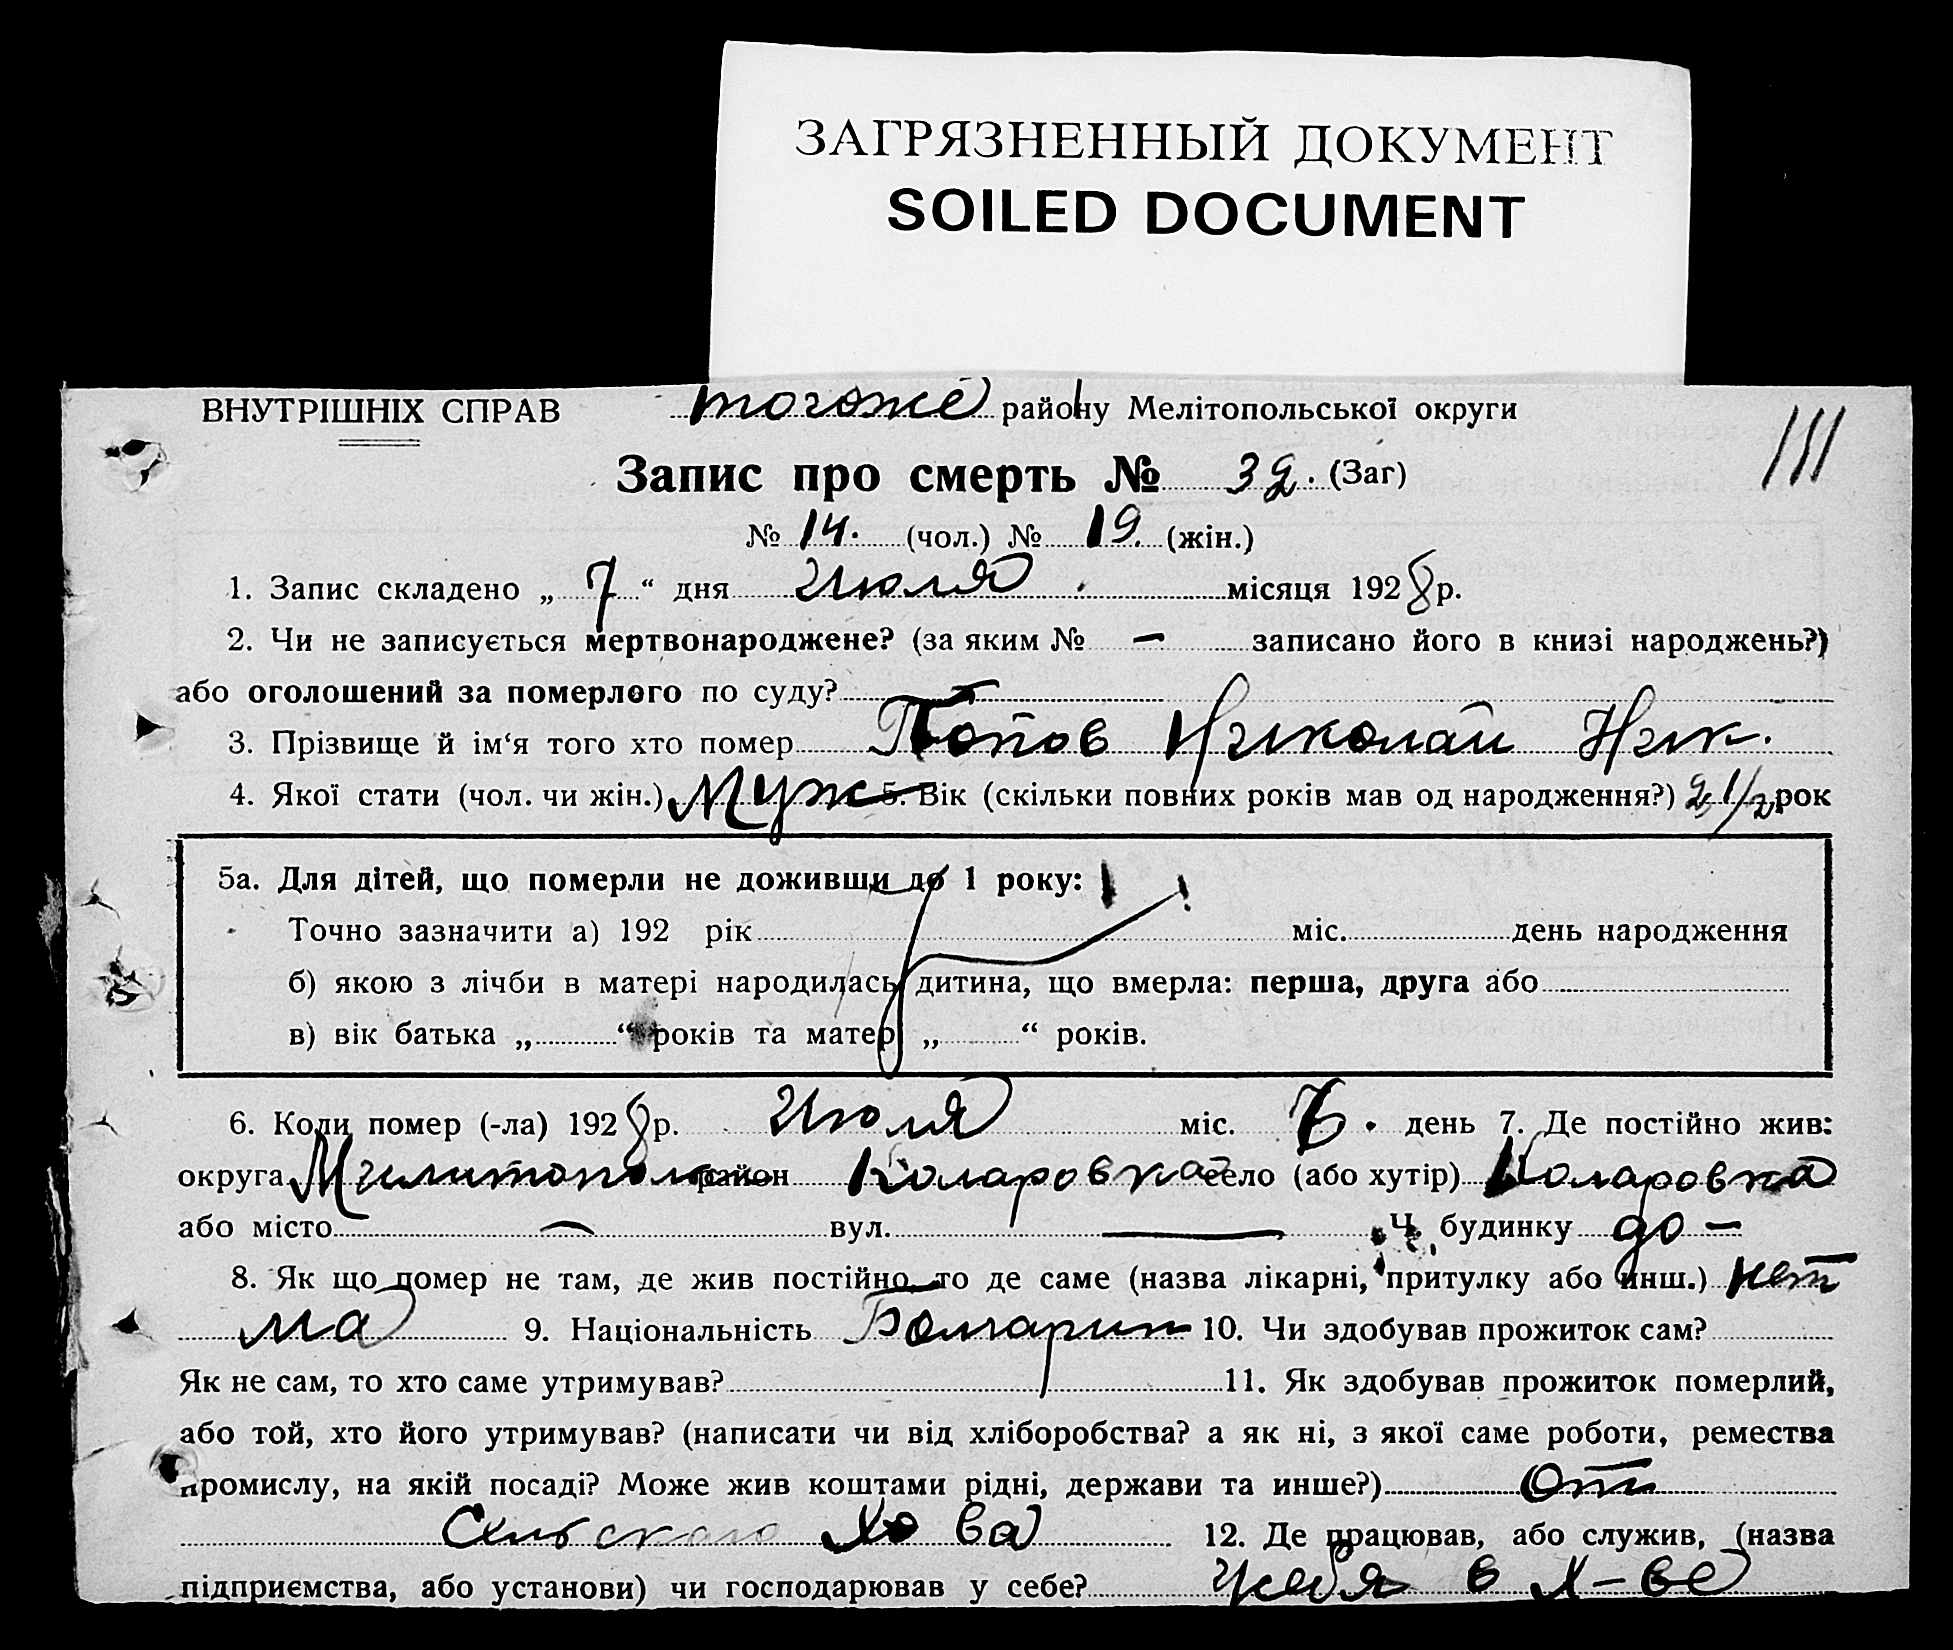 ЗАГРЯЗНЕННЫЙ ДОКУМЕНТ
SOILED DOCUMENT
ВНУТРІШНІХ СПРАВ тогоже району Мелітопольської округи
111
Запис про смерть № 32. (Заг)
№ 14. (чол.) № 19. (жін.)
1. Запис складено „ 7 “ дня Июля місяця 1928 р.
2. Чи не записується мертвонароджене? (за яким № — записано його в книзі народжень?)
або оголошений за померлого по суду? —
3. Прізвище й ім‘я того хто помер Попов Николай Ник.
4. Якої стати (чол. чи жін.) Муж 5. Вік (скільки повних років мав од народження?) 2 1/2 рок
5а. Для дітей, що померли не доживши до 1 року:
Точно зазначити а) 192 рік міс. день народження
б) якою з лічби в матері народилась дитина, що вмерла: перша, друга або
в) вік батька „ “ років та матері „ “ років.
6. Коли помер (-ла) 1928 р. Июля міс. день 7. Де постійно жив:
округа Милитополь район Коларовка село (або хутір) Коларовка
або місто — вул. — Ч. будинку до —
8. Як що помер не там, де жив постійно, то де саме (назва лікарні, притулку або инш.) нет
ма 9. Національність Болгарин 10. Чи здобував прожиток сам?
Як не сам, то хто саме утримував? 11. Як здобував прожиток померлий,
або той, хто його утримував? (написати чи від хліборобства? а як ні, з якої саме роботи, ремества
промислу, на якій посаді? Може жив коштами рідні, держави та инше?) От
Сельского Хо ва 12. Де працював, або служив, (назва
підприємства, або установи) чи господарював у себе? у себя в х-ве